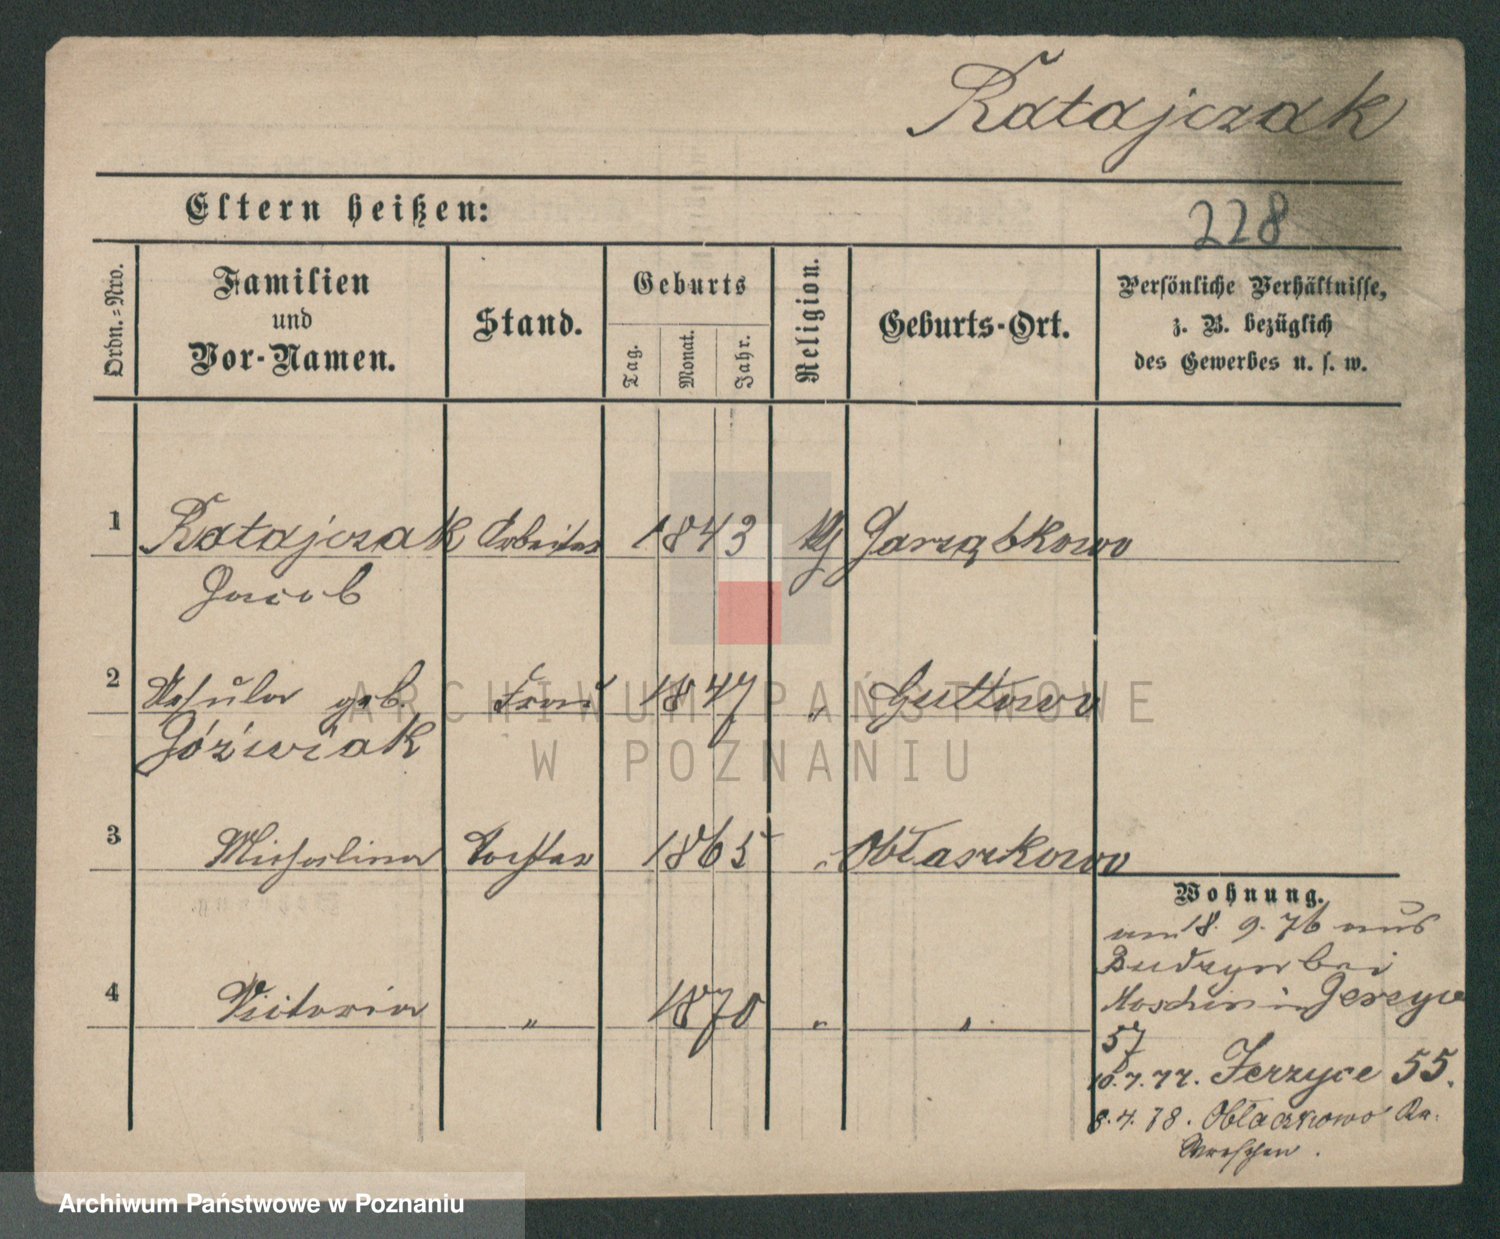 Ratajczak
Eltern heißen:
228
Ordn.=Nro.
Familien
und
Vor-Namen.
Stand.
Geburts
Tag.
Monat.
Jahr.
Religion.
Geburts-Ort.
Persönliche Verhältnisse,
z. B. bezüglich
des Gewerbes u. s. w.
1 Ratajczak Arbeiter 1843 Garząbkowo
Jacob
2 geb. Frau 1847 " Guttowo
Góźwiak
3 Michalina Tochter 1865 " Obłaszkowo
4 Victoria " 1870 " "
Wohnung.
am 18. 9. 76 aus
Budzyn bei
Moschin in Jerzyce
57
10.7.77. Jerzyce 55.
8.4.78. Obłaczkowo
Wreschen.
ARCHIWUM PAŃSTWOWE
W POZNANIU
Archiwum Państwowe w Poznaniu